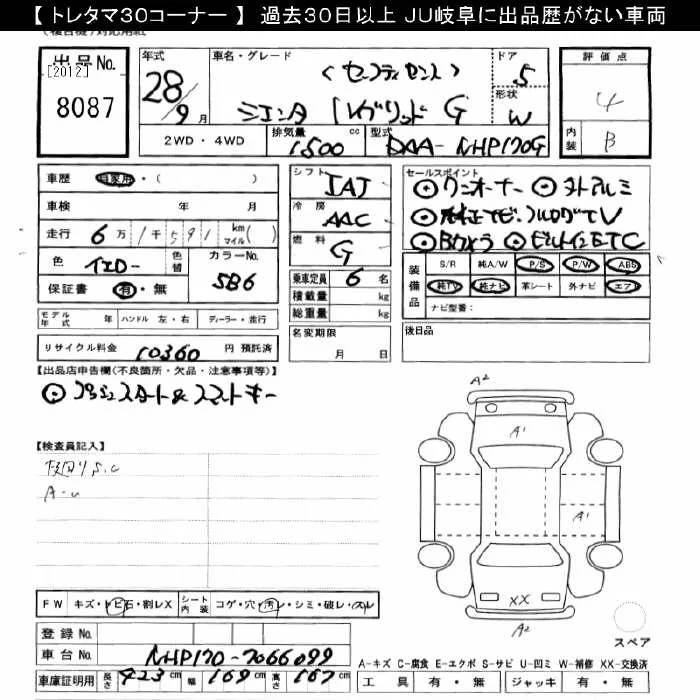 【トレタマ30コーナー】 過去30日以上 JU岐阜に出品歴がない車両
出品No. 年式 車名・グレード ドア 評価点
[2012] 〈セーフティセンス〉 5
8087 28/9月 シエンタ ハイブリッド G 形状 W 4
2WD・4WD 排気量 1500 cc 型式 DAA-NHP170G 内装 B
車歴 自家用・( ) シフト IAT セールスポイント
◎ワンオーナー ◎外アルミ
車検 年 月 冷房 AAC
◎純正ナビ フルセグTV
走行 6万1千591 km マイル( ) 燃料 G
◎Bカメラ ◎ビルトインETC
色 イエロー 色替 カラーNo. 5B6
乗車定員 6名 装備品 S/R 純A/W P/S P/W ABS
保証書 有・無 積載量 kg 純TV 純ナビ 革シート 外ナビ エアB
総重量 kg ナビ型番:
モデル年式 年 ハンドル 左・右 ディーラー・並行 名変期限 月 日 後日品
リサイクル料金 10360 円 預託済
【出品店申告欄(不良箇所・欠品・注意事項等)】
◎プッシュスタート&スマートキー
A2
【検査員記入】 A1
S.C
A-U
A1
XX
FW キズ・トビ石・割レX シート内装 コゲ・穴・汚レ・シミ・破レ・スレ
A2
登録No. スペア
車台No. NHP170-7066099
A-キズ C-腐食 E-エクボ S-サビ U-凹ミ W-補修 XX-交換済
車庫証明用 長さ 423cm 幅 169cm 高さ 167cm 工具 有・無 ジャッキ 有・無